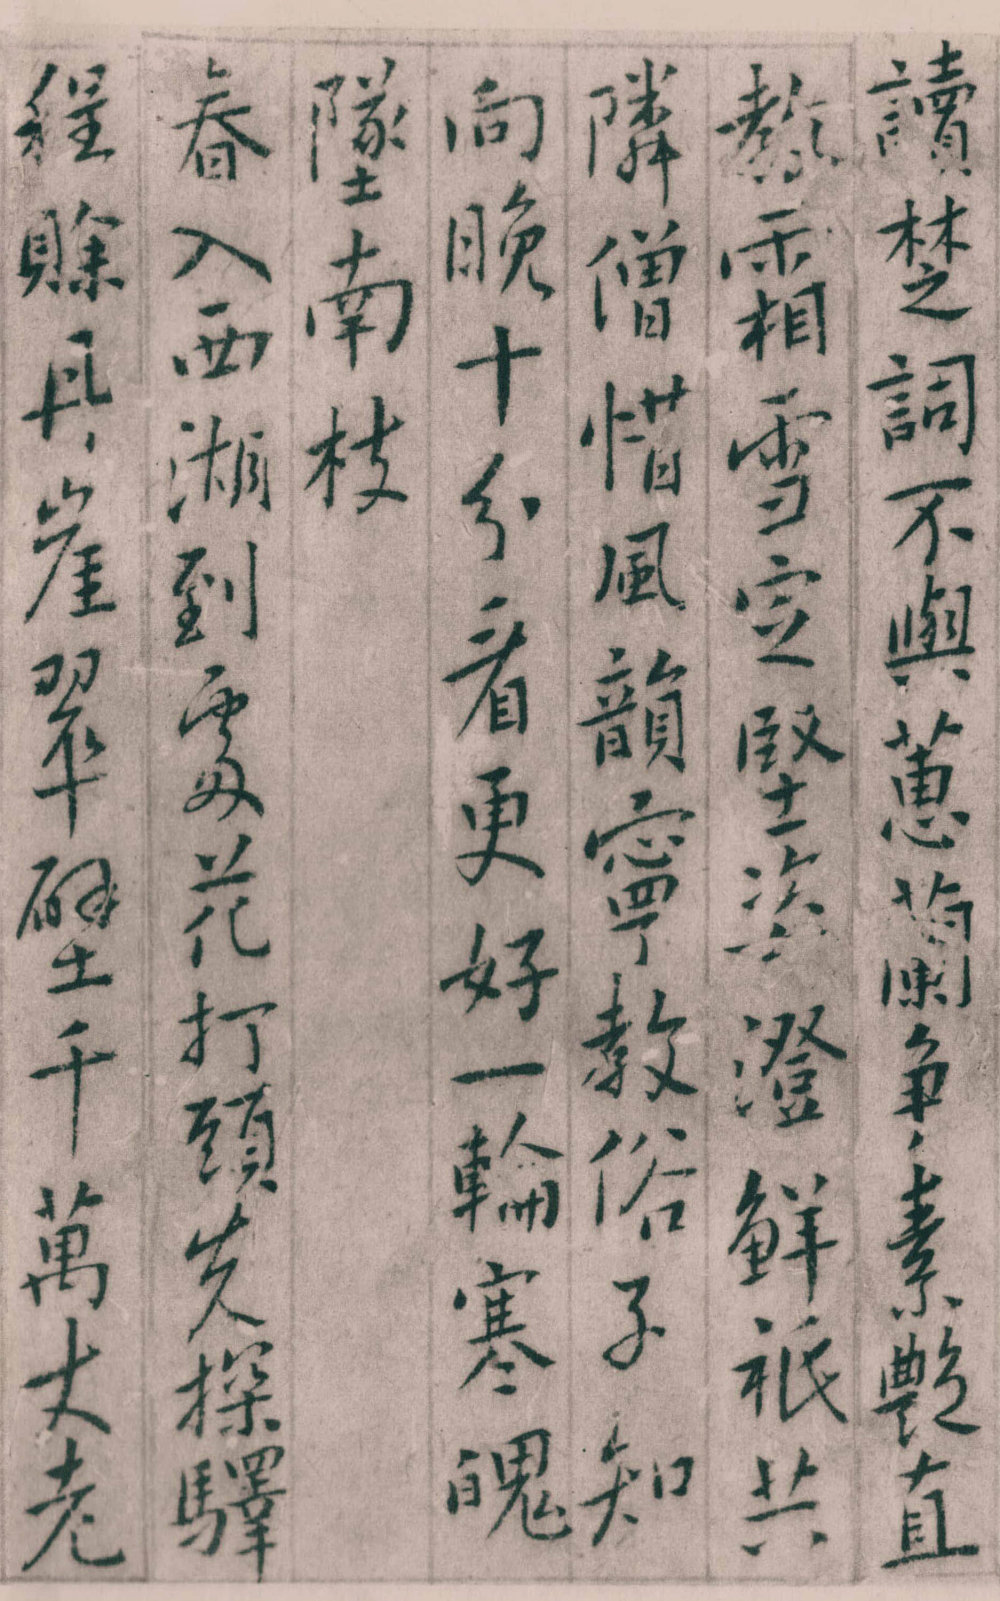 讀楚詞不與蕙蘭爭素艷直
教霜雪定堅姿澄鮮祇共
隣僧惜風韻寧教俗子知
向晚十分看更好一輪寒魄
墜南枝
春入西湖到處花打頭先探驛
程賒具崖翠壁千萬丈老